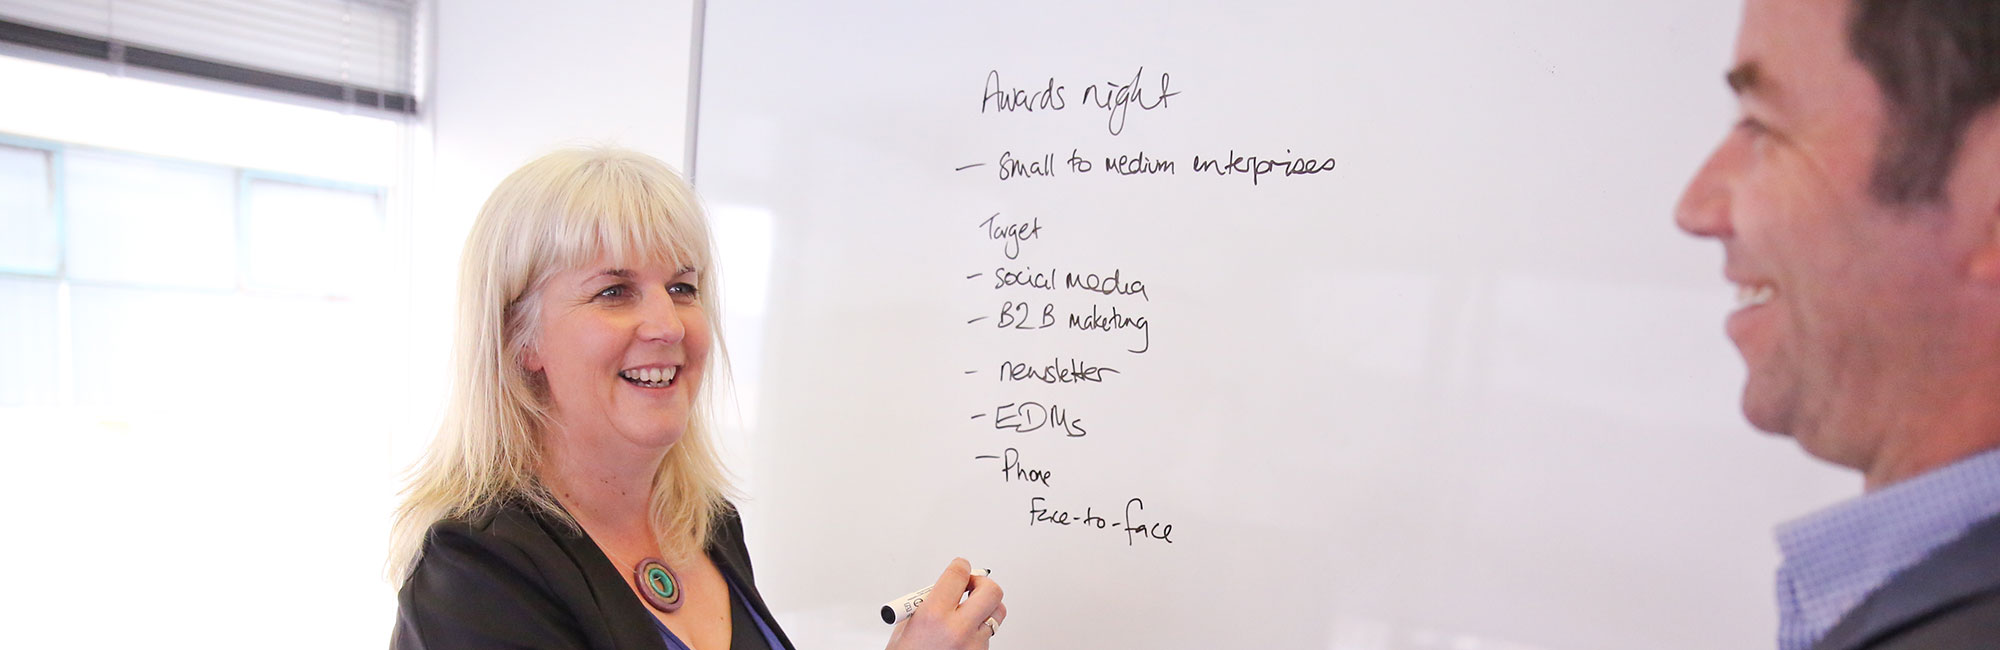 Awards night
- small to medium enterprises
Target
- social media
- B2B maketing
- newsletter
- EDMs
- Phone
Face-to-face